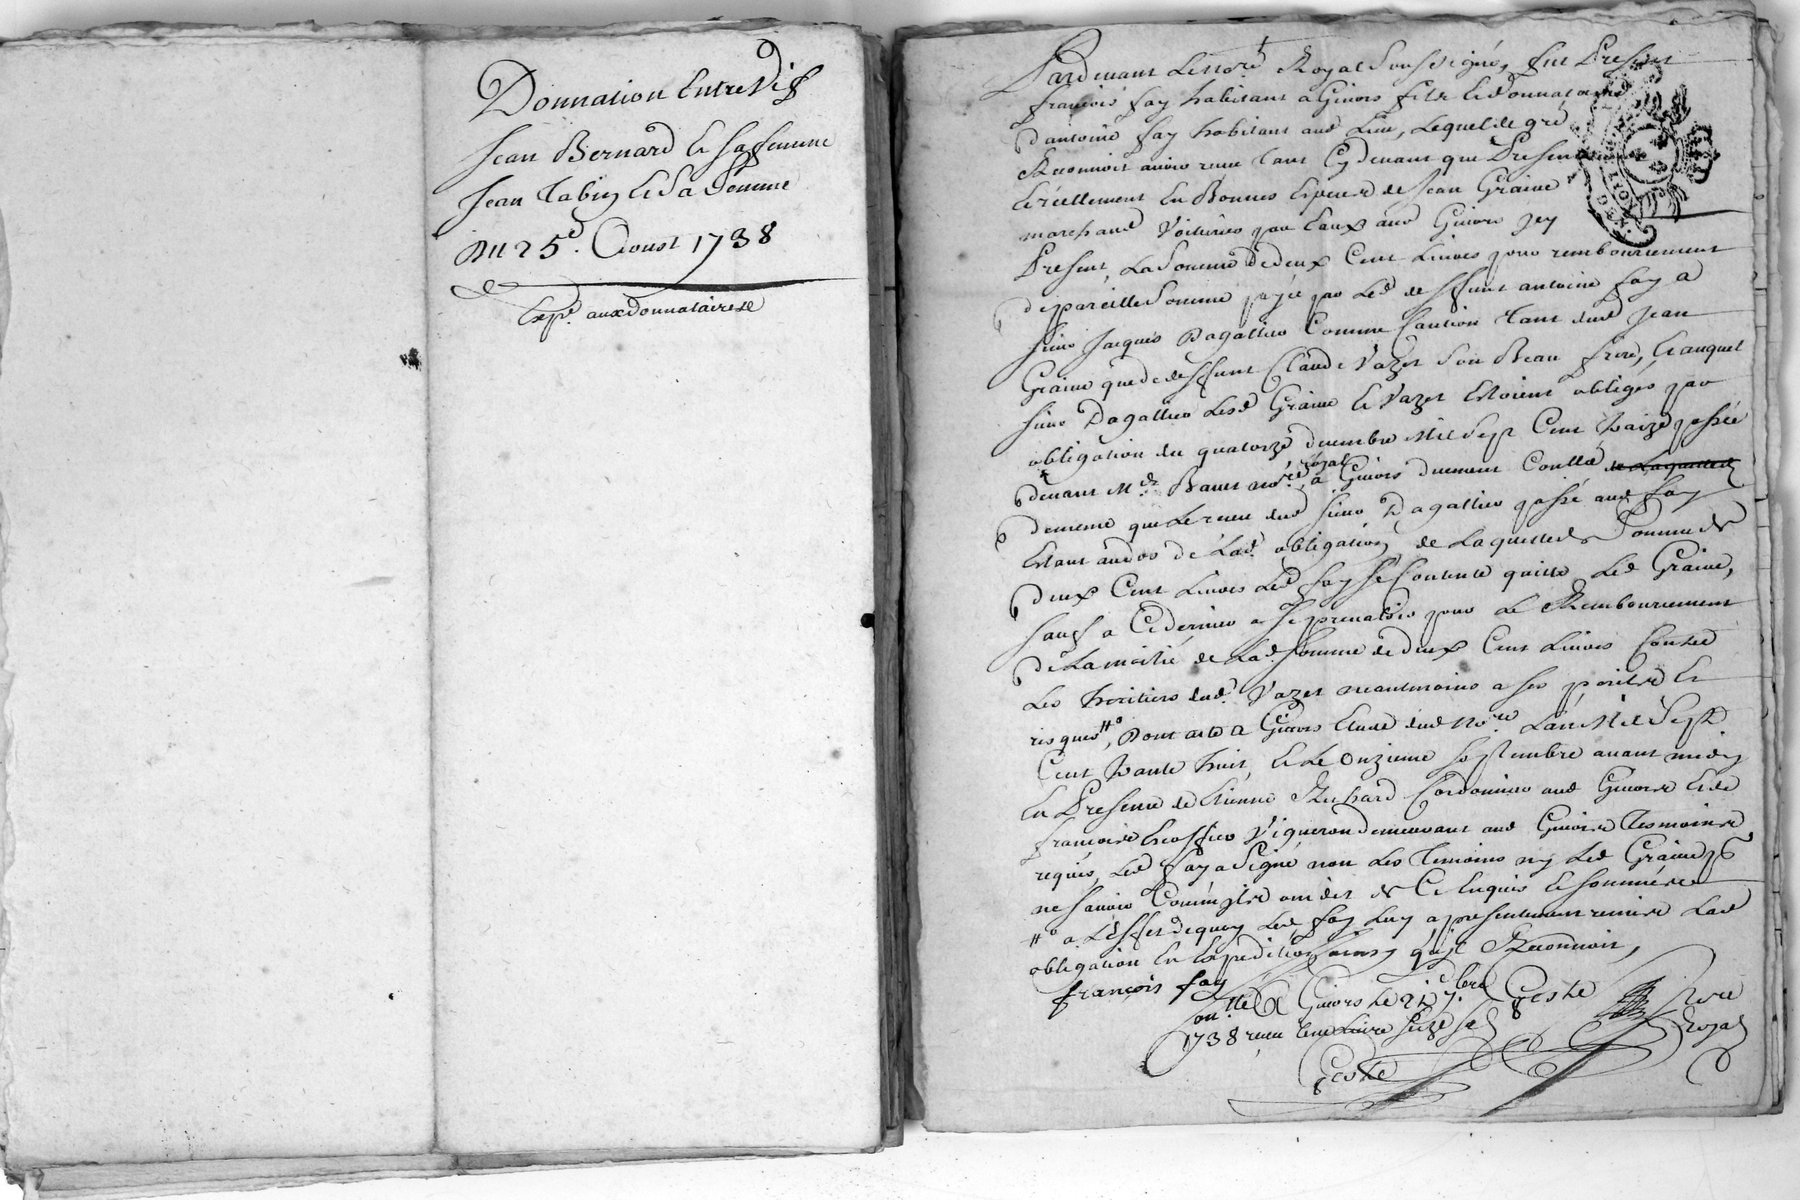 Donnation Entre Vifs
Jean Bernard & sa femme
Jean Tabuy & sa femme
Du 25e. Aoust 1738
Expé. aux donnataires
Pardevant Le nore. Royal Soussigné, fut Present
françois fay habitant a Givors fils & donnataire
d'antoine fay habitant aud Lieu, Lequel de gré
Reconnoit avoir receu tant cy devant que Presentement
& réellement En Bonnes Especes de Jean Graine
marchand Voiturier par Eaux aud Givors icy
Present, La Somme de deux Cent Livres pour remboursement
de pareille Somme payée par Led deffunt antoine fay a
sieur Jacques Dagallier Comme Caution tant dud Jean
Graine que de deffunt Claude Vazet Son Beau frere, & auquel
sieur Dagallier Lesd Graine & Vazet Estoient obligés par
obligation du quatorze decembre Mil Sept Cent traize passée
devant Me. nore. royal a Givors duement Conllé
de meme que Le receu dud sieur Dagallier passé aud fay
Estant au dos de Lad. obligation, de Laquelle Somme de
deux Cent Livres Led fay Se Contente quitte Led Graine,
Sauf a Ce dernier a Se prevaloir pour Le Remboursement
de La moitié de Lad. Somme de deux Cent Livres Contre
Les heritiers dud. Vazet neantmoins a ses perils &
risques #°, Dont acte a Givors Etude dud Nore. L'an Mil Sept
Cent trante huit, & Le Onzieme Septembre avant midy
En Presence de Etienne Richard Cordonnier aud Givors & de
françois Vigneron demeurant aud Givors Tesmoins
requis, Led fay a Signé non Les temoins ny Led Graine pr
ne Savoir Comm'ils ont dit de Ce Enquis & Sommés
#° a L'Effet dequoy Led fay luy a presentement remise Lad
obligation En Expedition ainsy qu'il Reconnoit,
françois fay
Conllé A Givors Le 21 7.bre
1738 receu Seize
Nore
Royal